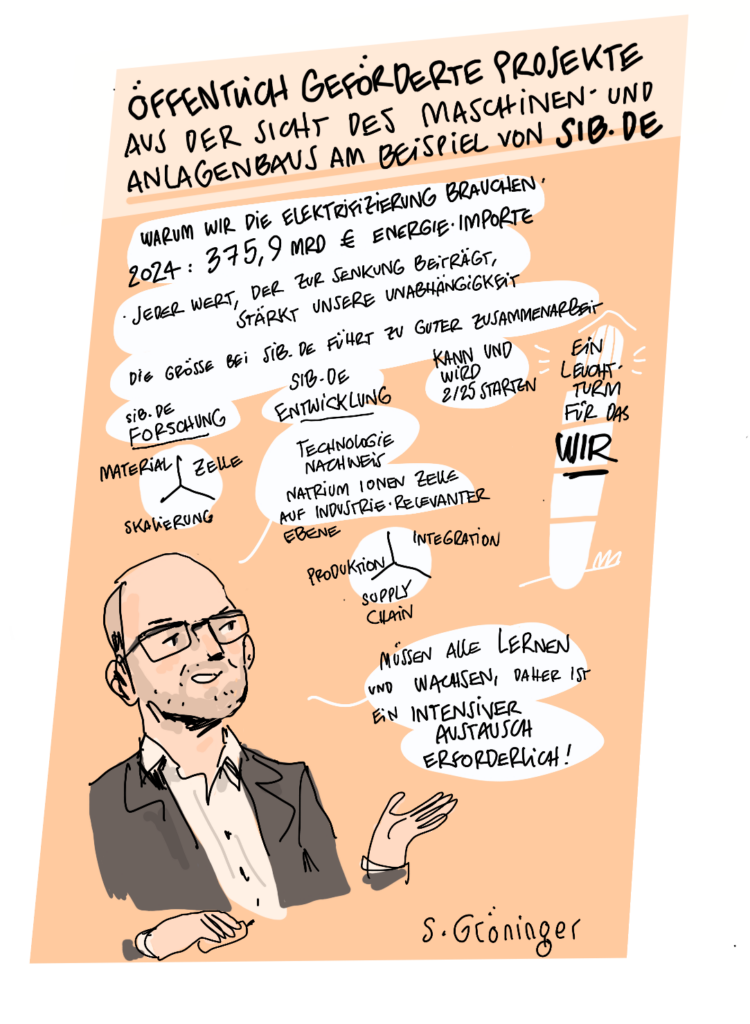 ÖFFENTLICH GEFÖRDERTE PROJEKTE
AUS DER SICHT DES MASCHINEN- UND
ANLAGENBAUS AM BEISPIEL VON SIB.DE
WARUM WIR DIE ELEKTRIFIZIERUNG BRAUCHEN·
2024: 375,9 MRD € ENERGIE·IMPORTE
· JEDER WERT, DER ZUR SENKUNG BEITRÄGT,
STÄRKT UNSERE UNABHÄNGIGKEIT
DIE GRÖSSE BEI SIB.DE FÜHRT ZU GUTER ZUSAMMENARBEIT
SIB.DE
FORSCHUNG
MATERIAL
ZELLE
SKALIERUNG
SIB.DE
ENTWICKLUNG
KANN UND
WIRD
2/25 STARTEN
EIN
LEUCHT-
TURM
FÜR DAS
WIR
TECHNOLOGIE
NACHWEIS
NATRIUM IONEN ZELLE
AUF INDUSTRIE·RELEVANTER
EBENE
INTEGRATION
PRODUKTION
SUPPLY
CHAIN
MÜSSEN ALLE LERNEN
UND WACHSEN, DAHER IST
EIN INTENSIVER
AUSTAUSCH
ERFORDERLICH!
S. Gröninger